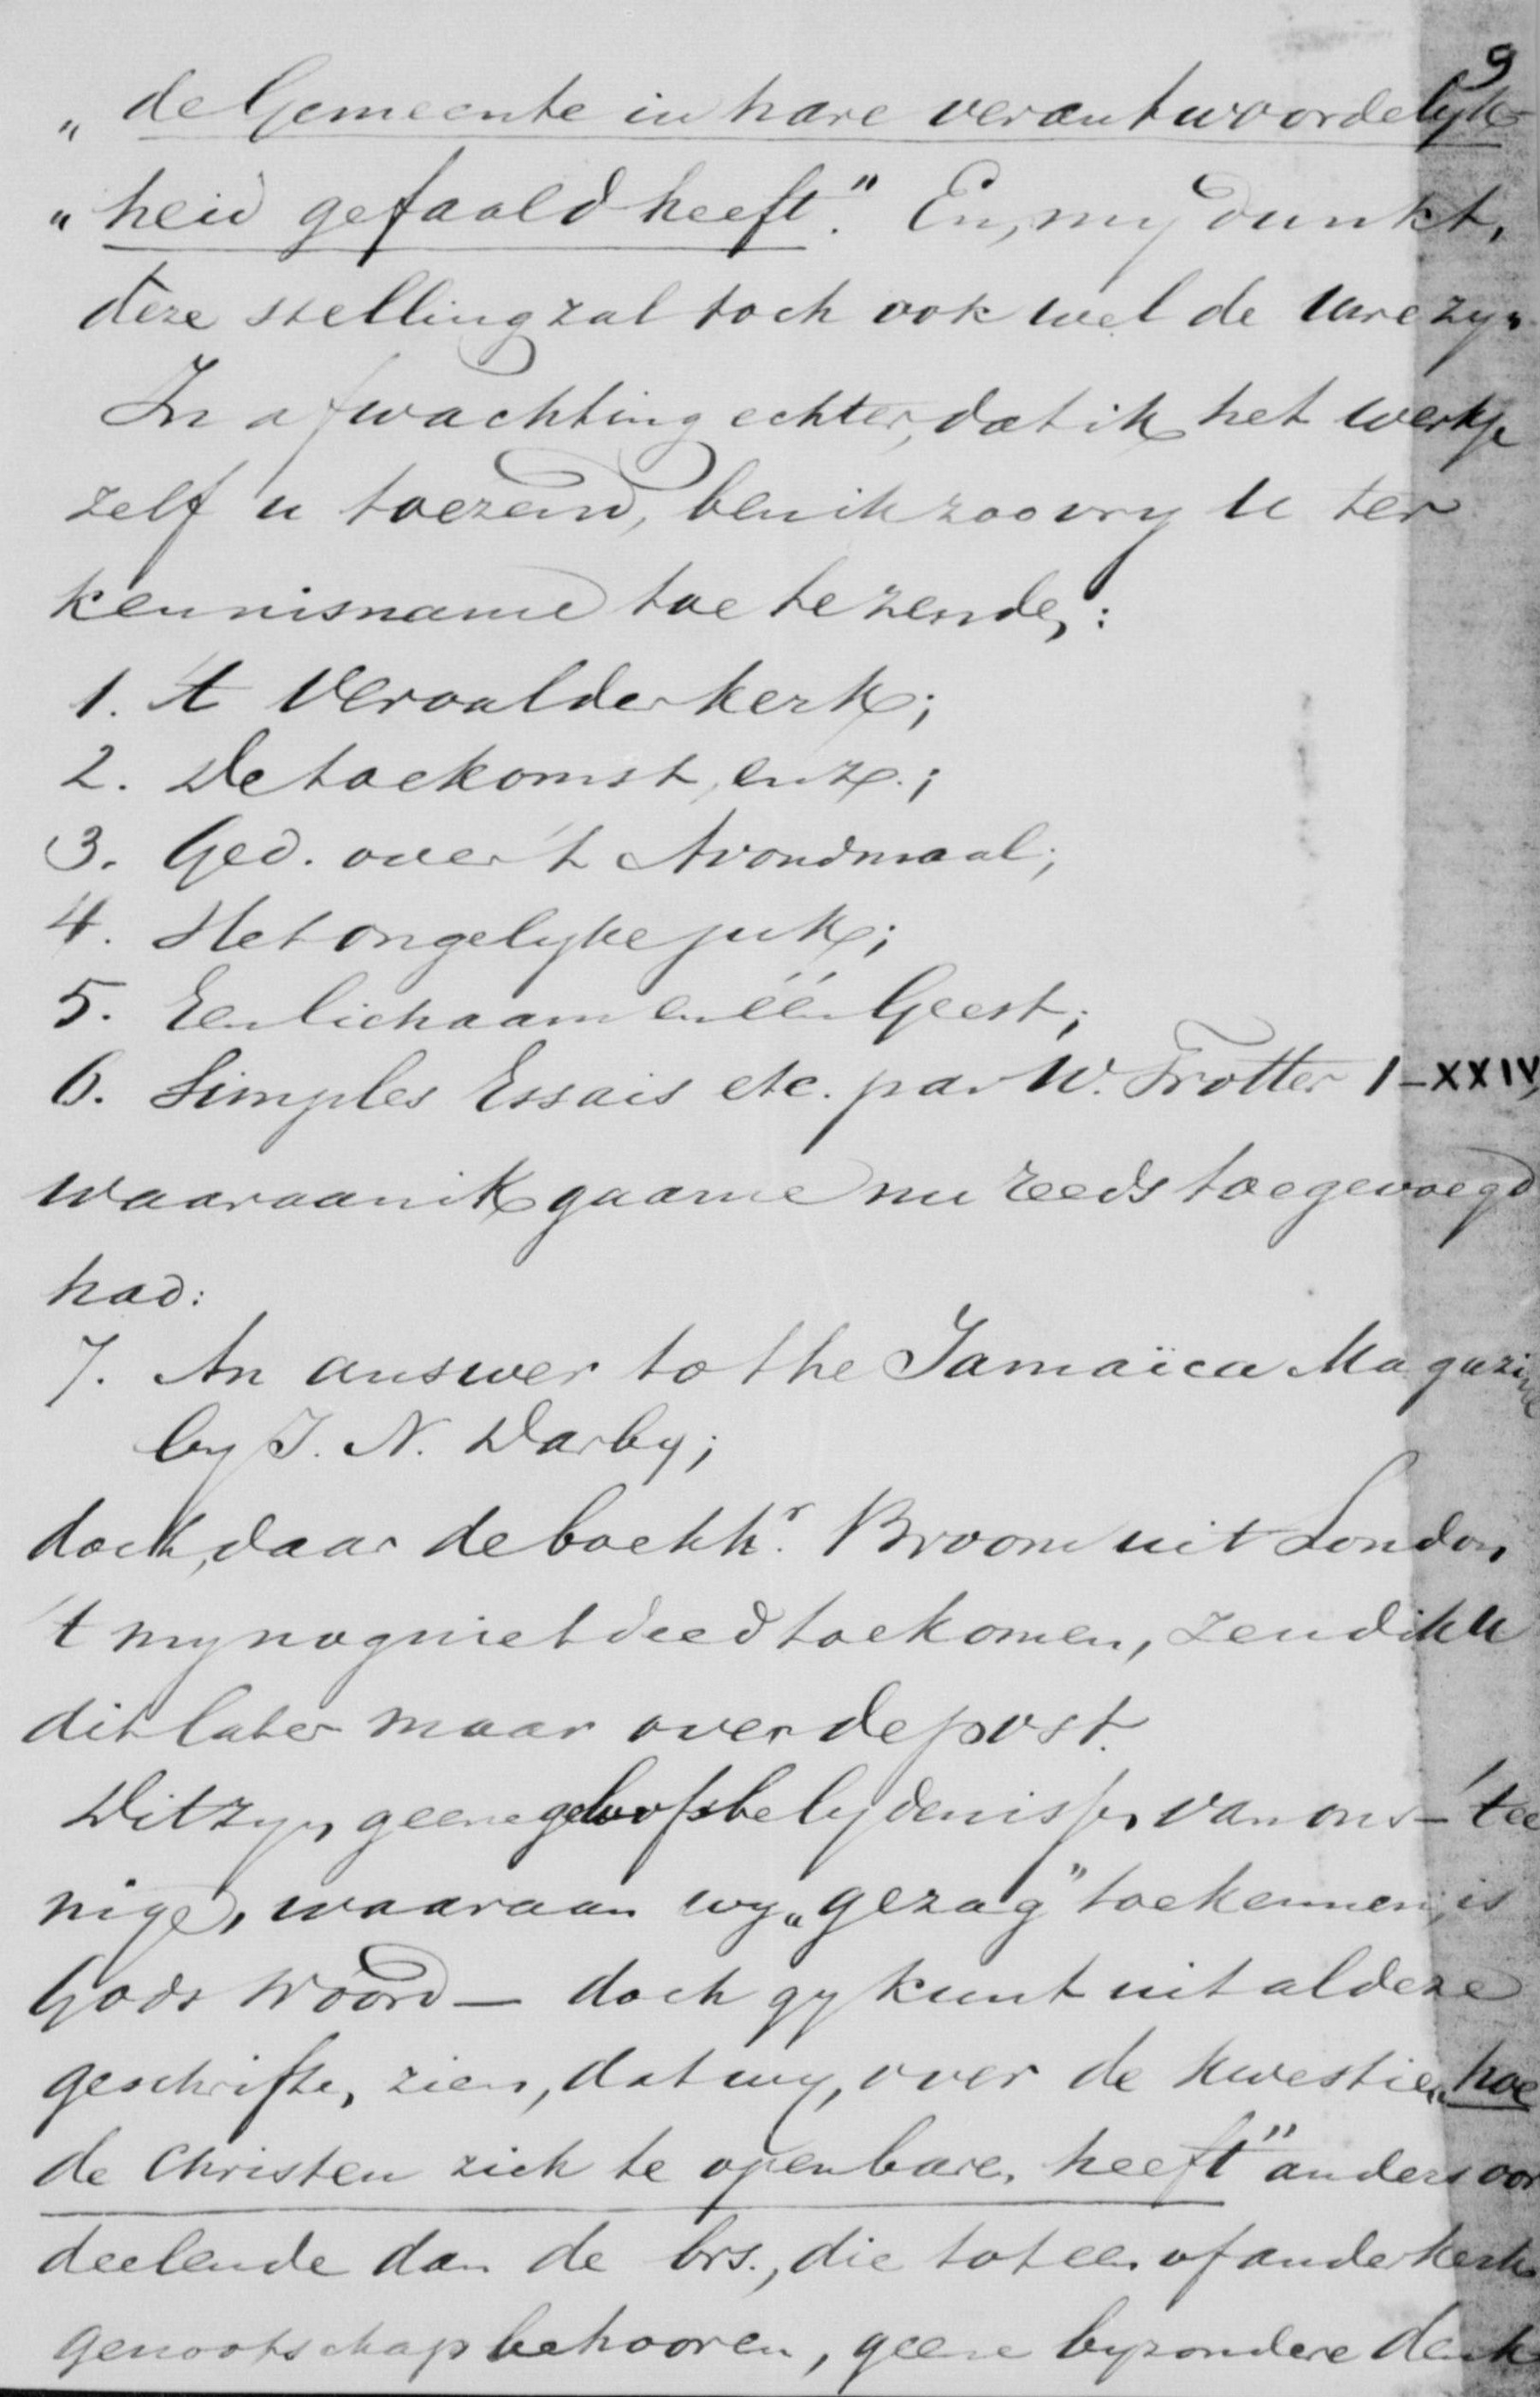 9
„de Gemeente in hare verantwoordelyk-
„heid gefaald heeft." En, my dunkt,
deze stelling zal toch ook wel de uwe zyn.
In afwachting echter, dat ik het werkje
zelf u toezend, ben ik zoo vry U ter
kennisname toe te zenden:
1. 't Verval der kerk;
2. De toekomst, enz.;
3. Ged. over 't Avondmaal;
4. Het ongelyke juk;
5. Een lichaam en één Geest;
6. Simples Essais etc. par W. Trotter I-XXIV,
waaraan ik gaarne nu reeds toegevoegd
had:
7. An answer to the Jamaïca Magazine
by J. N. Darby;
doch, daar de boekhr. Broom uit London
't my nog niet deed toekomen, zend ik U
dit later maar over de post.
Dit zyn geene geloofsbelydenissen van ons – 't ee
nige, waaraan wy „gezag" toekennen, is
Gods Woord – doch gy kunt uit al deze
geschriften zien, dat wy, over de kwestie „hoe
de Christen zich te openbaren heeft" anders oor
deelende dan de brs., die tot een of ander kerk
genootschap behooren, geene byzondere denk